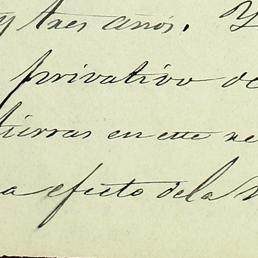 y tres anos. Y
privativo de
tierras en este re
a efecto de la